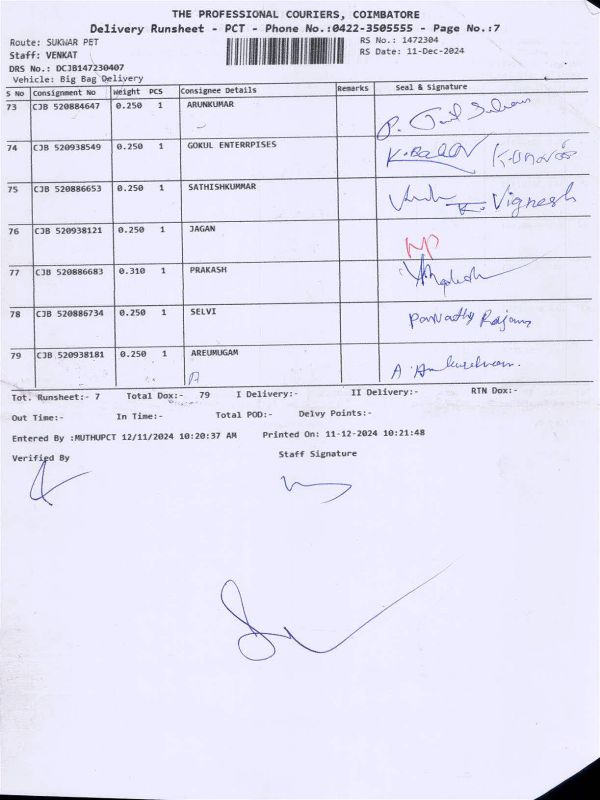 THE PROFESSIONAL COURIERS, COIMBATORE
Delivery Runsheet - PCT - Phone No.:0422-3505555 - Page No.:7
Route: SUKWAR PET RS No.: 1472304
Staff: VENKAT RS Date: 11-Dec-2024
DRS No.: DCJB147230407
Vehicle: Big Bag Delivery
S No Consignment No Weight PCS Consignee Details Remarks Seal & Signature
73 CJB 520884647 0.250 1 ARUNKUMAR
74 CJB 520938549 0.250 1 GOKUL ENTERRPISES
75 CJB 520886653 0.250 1 SATHISHKUMMAR Vignesh
76 CJB 520938121 0.250 1 JAGAN
77 CJB 520886683 0.310 1 PRAKASH
78 CJB 520886734 0.250 1 SELVI
79 CJB 520938181 0.250 1 AREUMUGAM
Tot. Runsheet:- 7 Total Dox:- 79 I Delivery:- II Delivery:- RTN Dox:-
Out Time:- In Time:- Total POD:- Delvy Points:-
Entered By :MUTHUPCT 12/11/2024 10:20:37 AM Printed On: 11-12-2024 10:21:48
Verified By Staff Signature